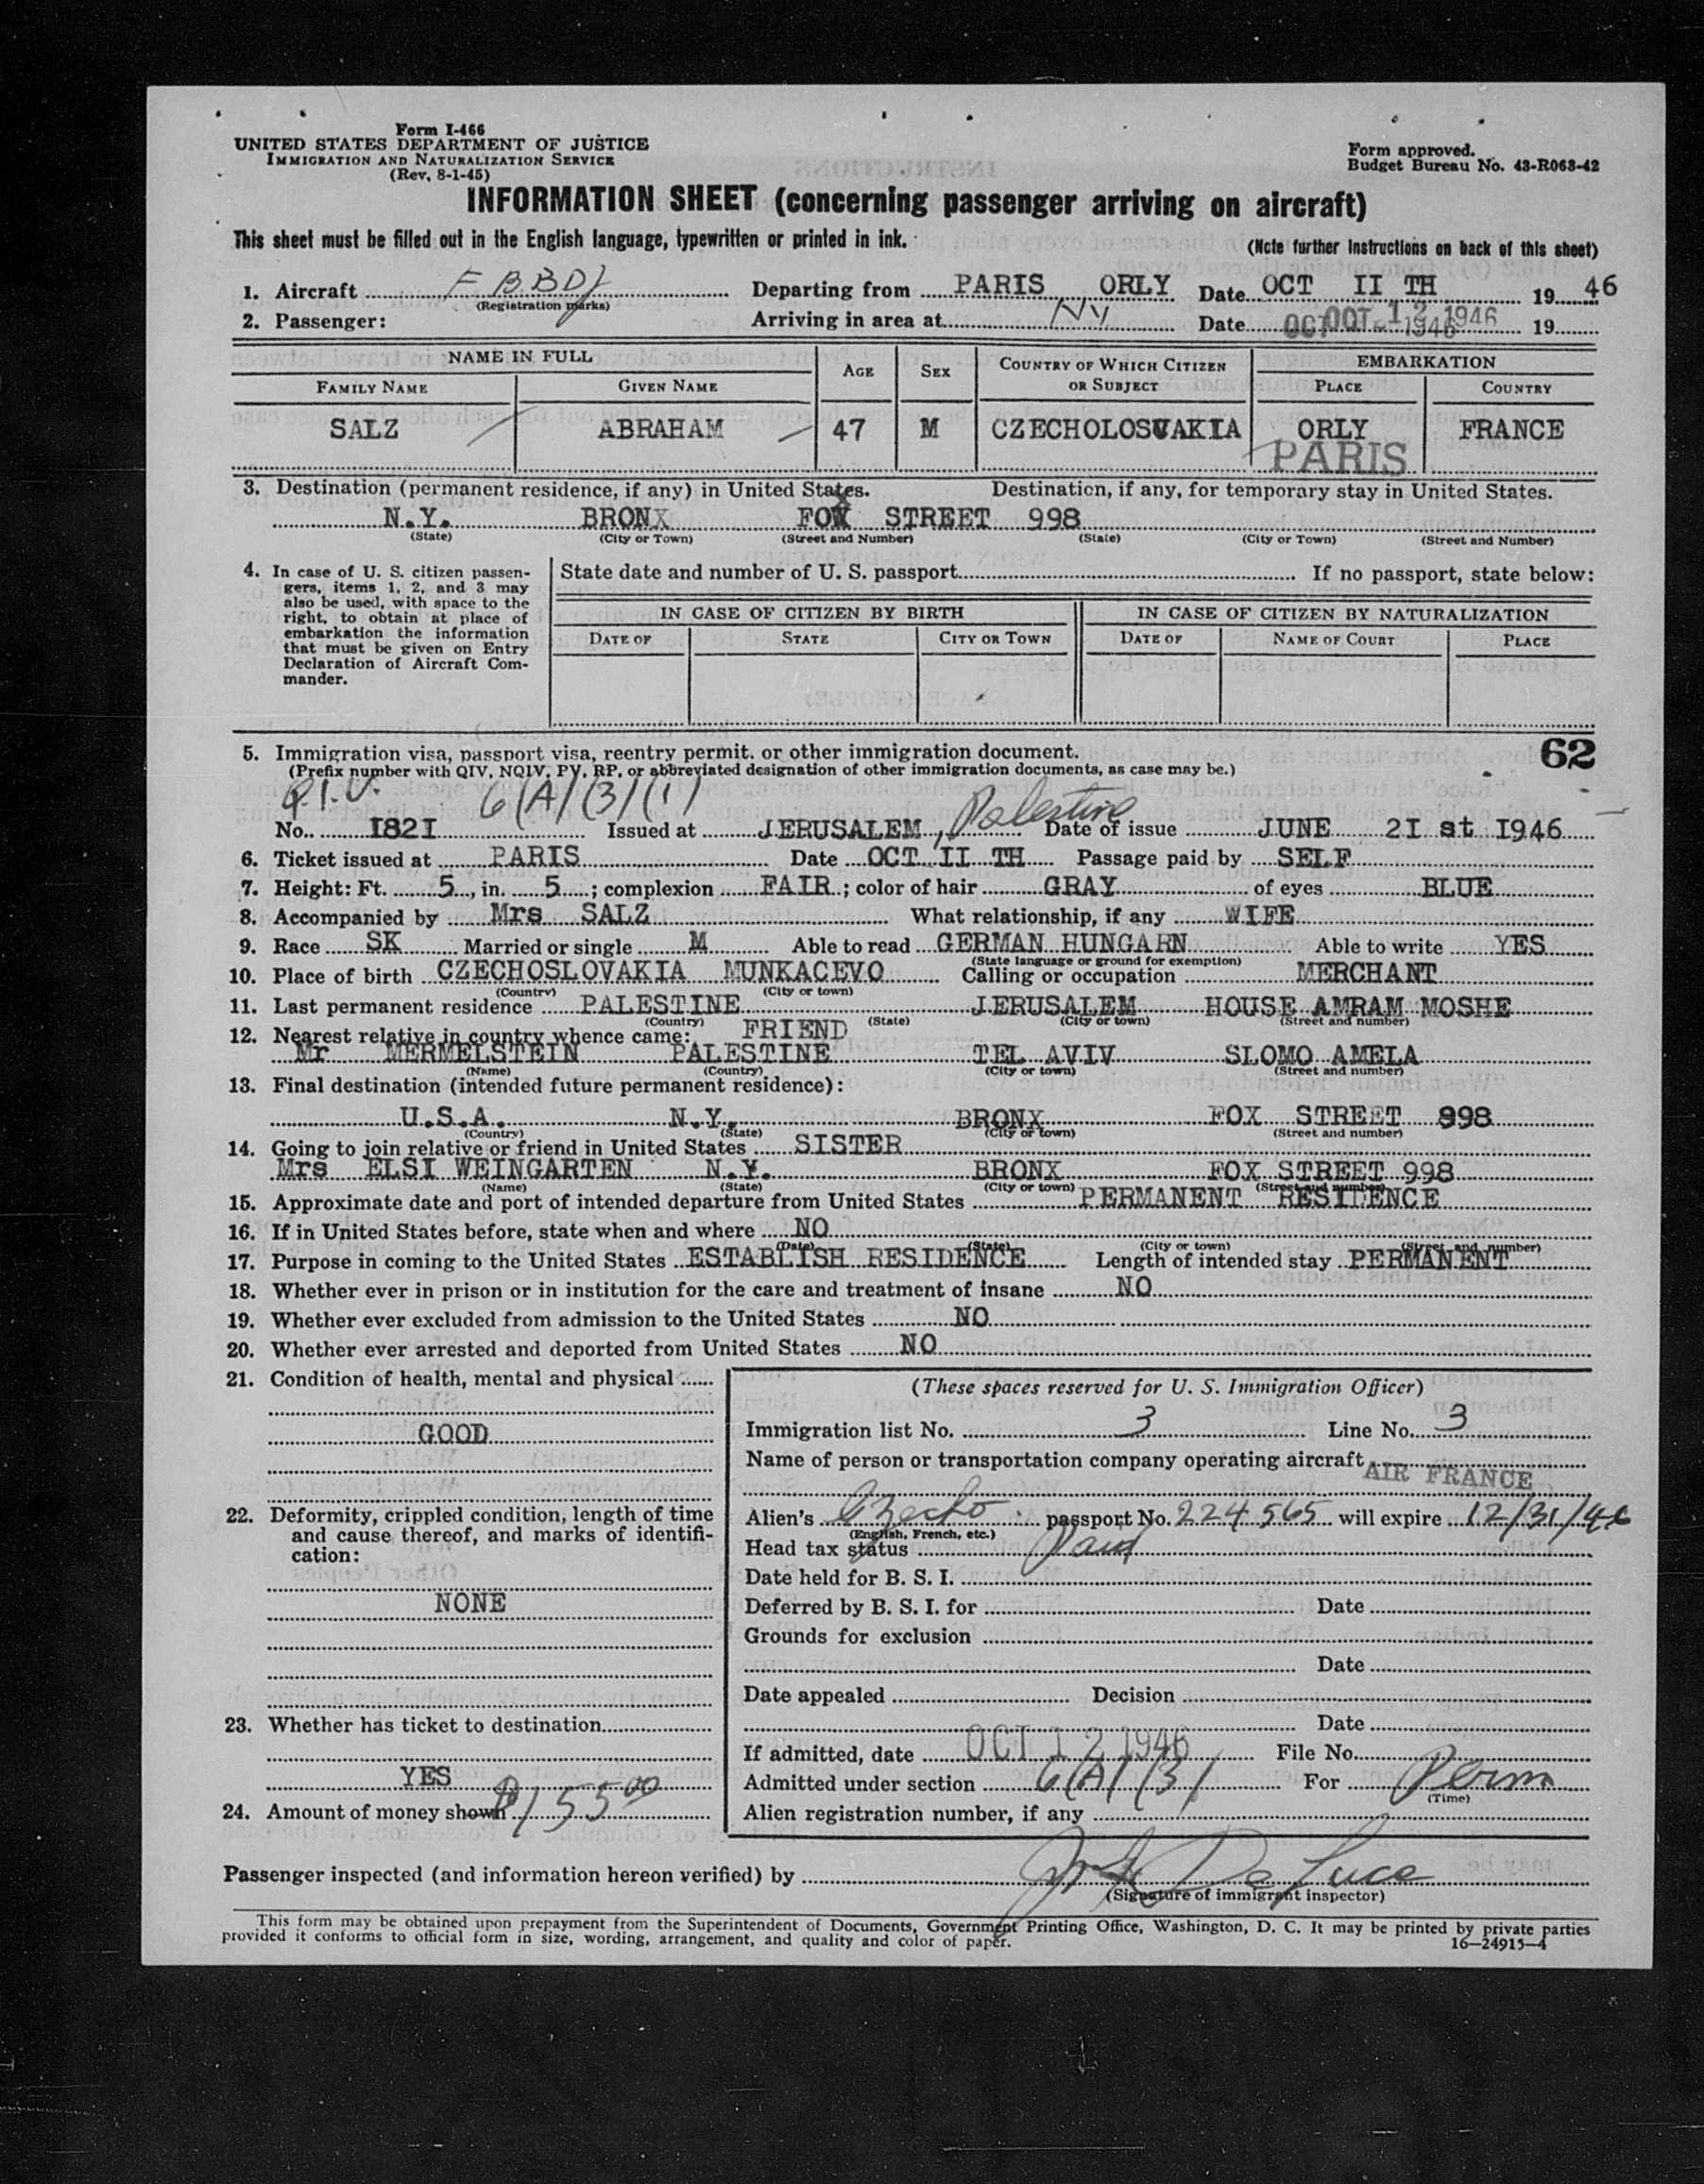 Form I-466
UNITED STATES DEPARTMENT OF JUSTICE
IMMIGRATION AND NATURALIZATION SERVICE
(Rev. 8-1-45)
Form approved.
Budget Bureau No. 43-R063-42
INFORMATION SHEET (concerning passenger arriving on aircraft)
This sheet must be filled out in the English language, typewritten or printed in ink.
(Note further instructions on back of this sheet)
1. Aircraft F BBD (Registration marks) Departing from PARIS ORLY Date OCT II TH 19 46
2. Passenger: Arriving in area at NY Date OCT 12 1946 19
NAME IN FULL AGE SEX COUNTRY OF WHICH CITIZEN OR SUBJECT EMBARKATION
FAMILY NAME GIVEN NAME PLACE COUNTRY
SALZ ABRAHAM 47 M CZECHOLOSVAKIA ORLY FRANCE
PARIS
3. Destination (permanent residence, if any) in United States. Destination, if any, for temporary stay in United States.
N.Y. BRONX FOX STREET 998
(State) (City or Town) (Street and Number) (State) (City or Town) (Street and Number)
4. In case of U. S. citizen passengers, items 1, 2, and 3 may
also be used, with space to the
right, to obtain at place of
embarkation the information
that must be given on Entry
Declaration of Aircraft Commander.
State date and number of U. S. passport If no passport, state below:
IN CASE OF CITIZEN BY BIRTH IN CASE OF CITIZEN BY NATURALIZATION
DATE OF STATE CITY OR TOWN DATE OF NAME OF COURT PLACE
5. Immigration visa, passport visa, reentry permit, or other immigration document.
62
(Prefix number with QIV, NQIV, PV, RP, or abbreviated designation of other immigration documents, as case may be.)
Q.I.V. 6(A)(3)(1)
No. I82I Issued at JERUSALEM, Palestine Date of issue JUNE 2I st I946
6. Ticket issued at PARIS Date OCT II TH Passage paid by SELF
7. Height: Ft. 5, in. 5; complexion FAIR; color of hair GRAY of eyes BLUE
8. Accompanied by Mrs SALZ What relationship, if any WIFE
9. Race SK Married or single M Able to read GERMAN HUNGARN Able to write YES
(State language or ground for exemption)
10. Place of birth CZECHOSLOVAKIA MUNKACEVO Calling or occupation MERCHANT
(Country) (City or town)
11. Last permanent residence PALESTINE JERUSALEM HOUSE AMRAM MOSHE
(Country) (State) (City or town) (Street and number)
12. Nearest relative in country whence came: FRIEND
Mr MERMELSTEIN PALESTINE TEL AVIV SLOMO AMELA
(Name) (Country) (City or town) (Street and number)
13. Final destination (intended future permanent residence):
U.S.A. N.Y. BRONX FOX STREET 998
(Country) (State) (City or town) (Street and number)
14. Going to join relative or friend in United States SISTER
Mrs ELSI WEINGARTEN N.Y. BRONX FOX STREET 998
(Name) (State) (City or town) (Street and number)
15. Approximate date and port of intended departure from United States PERMANENT RESIDENCE
16. If in United States before, state when and where NO
(Date) (State) (City or town) (Street and number)
17. Purpose in coming to the United States ESTABLISH RESIDENCE Length of intended stay PERMANENT
18. Whether ever in prison or in institution for the care and treatment of insane NO
19. Whether ever excluded from admission to the United States NO
20. Whether ever arrested and deported from United States NO
21. Condition of health, mental and physical
GOOD
22. Deformity, crippled condition, length of time
and cause thereof, and marks of identification:
NONE
23. Whether has ticket to destination
YES
24. Amount of money shown $155.00
(These spaces reserved for U. S. Immigration Officer)
Immigration list No. 3 Line No. 3
Name of person or transportation company operating aircraft
AIR FRANCE
Alien's Czecho passport No. 224565 will expire 12/31/46
(English, French, etc.)
Head tax status Paid
Date held for B. S. I.
Deferred by B. S. I. for Date
Grounds for exclusion
Date
Date appealed Decision
Date
If admitted, date OCT 12 1946 File No.
Admitted under section 6(A)(3) For Perm
(Time)
Alien registration number, if any
Passenger inspected (and information hereon verified) by De Luca
(Signature of immigrant inspector)
This form may be obtained upon prepayment from the Superintendent of Documents, Government Printing Office, Washington, D. C. It may be printed by private parties
provided it conforms to official form in size, wording, arrangement, and quality and color of paper.
16—24915-4